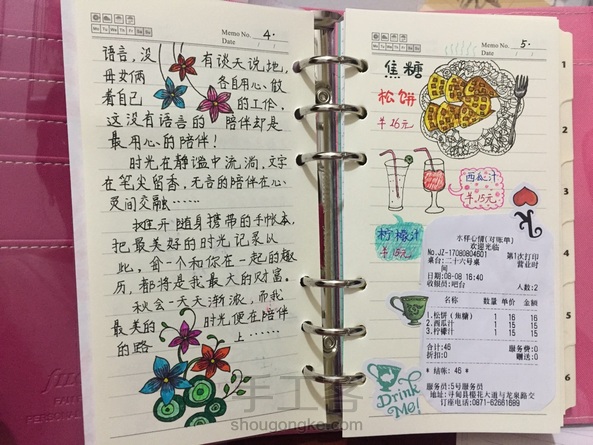 Memo No. 4.
Mo Tu We Th Fr Sa Su
Date / /
语言，没有谈天说地，
母女俩各自用心、做
着自己的工作，
这没有语言的陪伴却是
最用心的陪伴！
时光在静谧中流淌，文字
在笔尖留香，无言的陪伴在心、
灵间交融……
打开随身携带的手帐本，
把最美好的时光记录从
此，每一个和你在一起的趣
历，都将是我最大的财富。
秋会一天天渐浓，而我
最美的时光便在陪伴
的路上……
Memo No. 5.
Mo Tu We Th Fr Sa Su
Date / /
焦糖
松饼
￥16元
西瓜汁
￥15元
柠檬汁
￥15元
K
水样心情(对账单)
欢迎光临
No.JZ-17080804601 第1次打印
桌台:二十六号桌 营业时
间
日期:08-08 16:40
收银员:吧台 人数:2
名称 数量 单价 金额
1.松饼(焦糖) 1 16 16
2.西瓜汁 1 15 15
3.柠檬汁 1 15 15
合计:46 服务费:0
折扣:0 赠送:0
* 结帐: 46 *
服务员:5号服务员
地址:寻甸县樱花大道与龙泉路交
订座电话:0871-62661699
Drink
Me!
1
2
3
4
6
手工客
shougongke.com